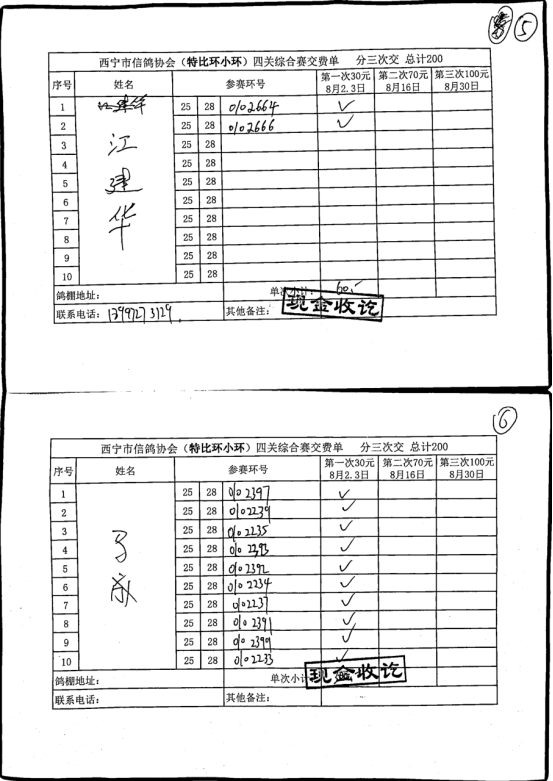 ⑤
西宁市信鸽协会（特比环小环）四关综合赛交费单 分三次交 总计200
序号 姓名 参赛环号 第一次30元 8月2.3日 第二次70元 8月16日 第三次100元 8月30日
1 江建华 25 28 0102664 ✓
2 25 28 0102666 ✓
3 江 25 28
4 25 28
5 建 25 28
6 25 28
7 华 25 28
8 25 28
9 25 28
10 25 28
鸽棚地址： 单次小计： 60.-
现金收讫
联系电话： 13997273129 其他备注：
⑥
西宁市信鸽协会（特比环小环）四关综合赛交费单 分三次交 总计200
序号 姓名 参赛环号 第一次30元 8月2.3日 第二次70元 8月16日 第三次100元 8月30日
1 25 28 0102397 ✓
2 25 28 0102239 ✓
3 25 28 0102235 ✓
4 25 28 0102393 ✓
5 25 28 0102392 ✓
6 25 28 0102234 ✓
7 25 28 0102237 ✓
8 25 28 0102391 ✓
9 25 28 0102399 ✓
10 25 28 0102233 ✓
鸽棚地址： 单次小计
现金收讫
联系电话： 其他备注：